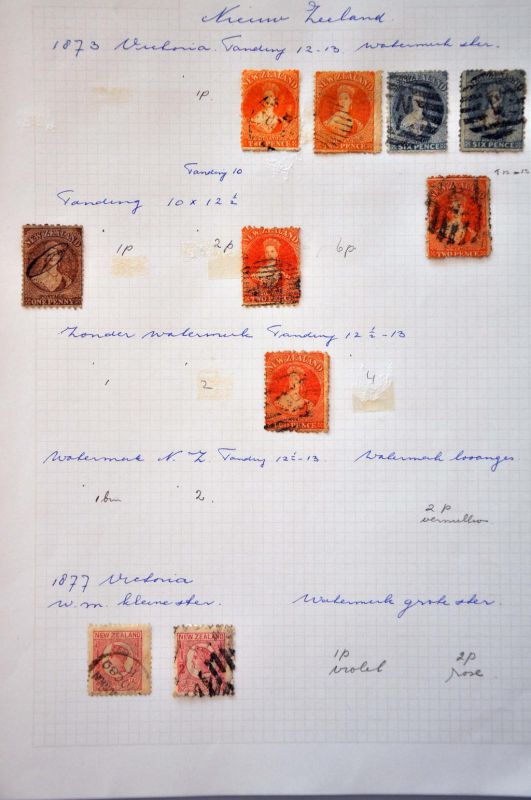 Nieuw Zeeland.
1873 Victoria. Tanding 12-13 watermerk ster.
1p
NEW ZEALAND
TWO PENCE
NEW ZEALAND
PENCE
NEW ZEALAND
SIX PENCE
NEW ZEALAND
SIX PENCE
Tanding 10
Tanding 10 x 12 ½
NEW ZEALAND
ONE PENNY
1p
2p
NEW ZEALAND
TWO PENCE
6p
TWO PENCE
Zonder watermerk Tanding 12 ½-13
1
2
NEW ZEALAND
TWO PENCE
4
Watermerk N. Z. Tanding 12 ½-13. Watermerk losanges
2.
2 p
vermillion
1877 Victoria
w.m. kleine ster. Watermerk grote ster.
NEW ZEALAND
NEW ZEALAND
1p
violet
2p
rose